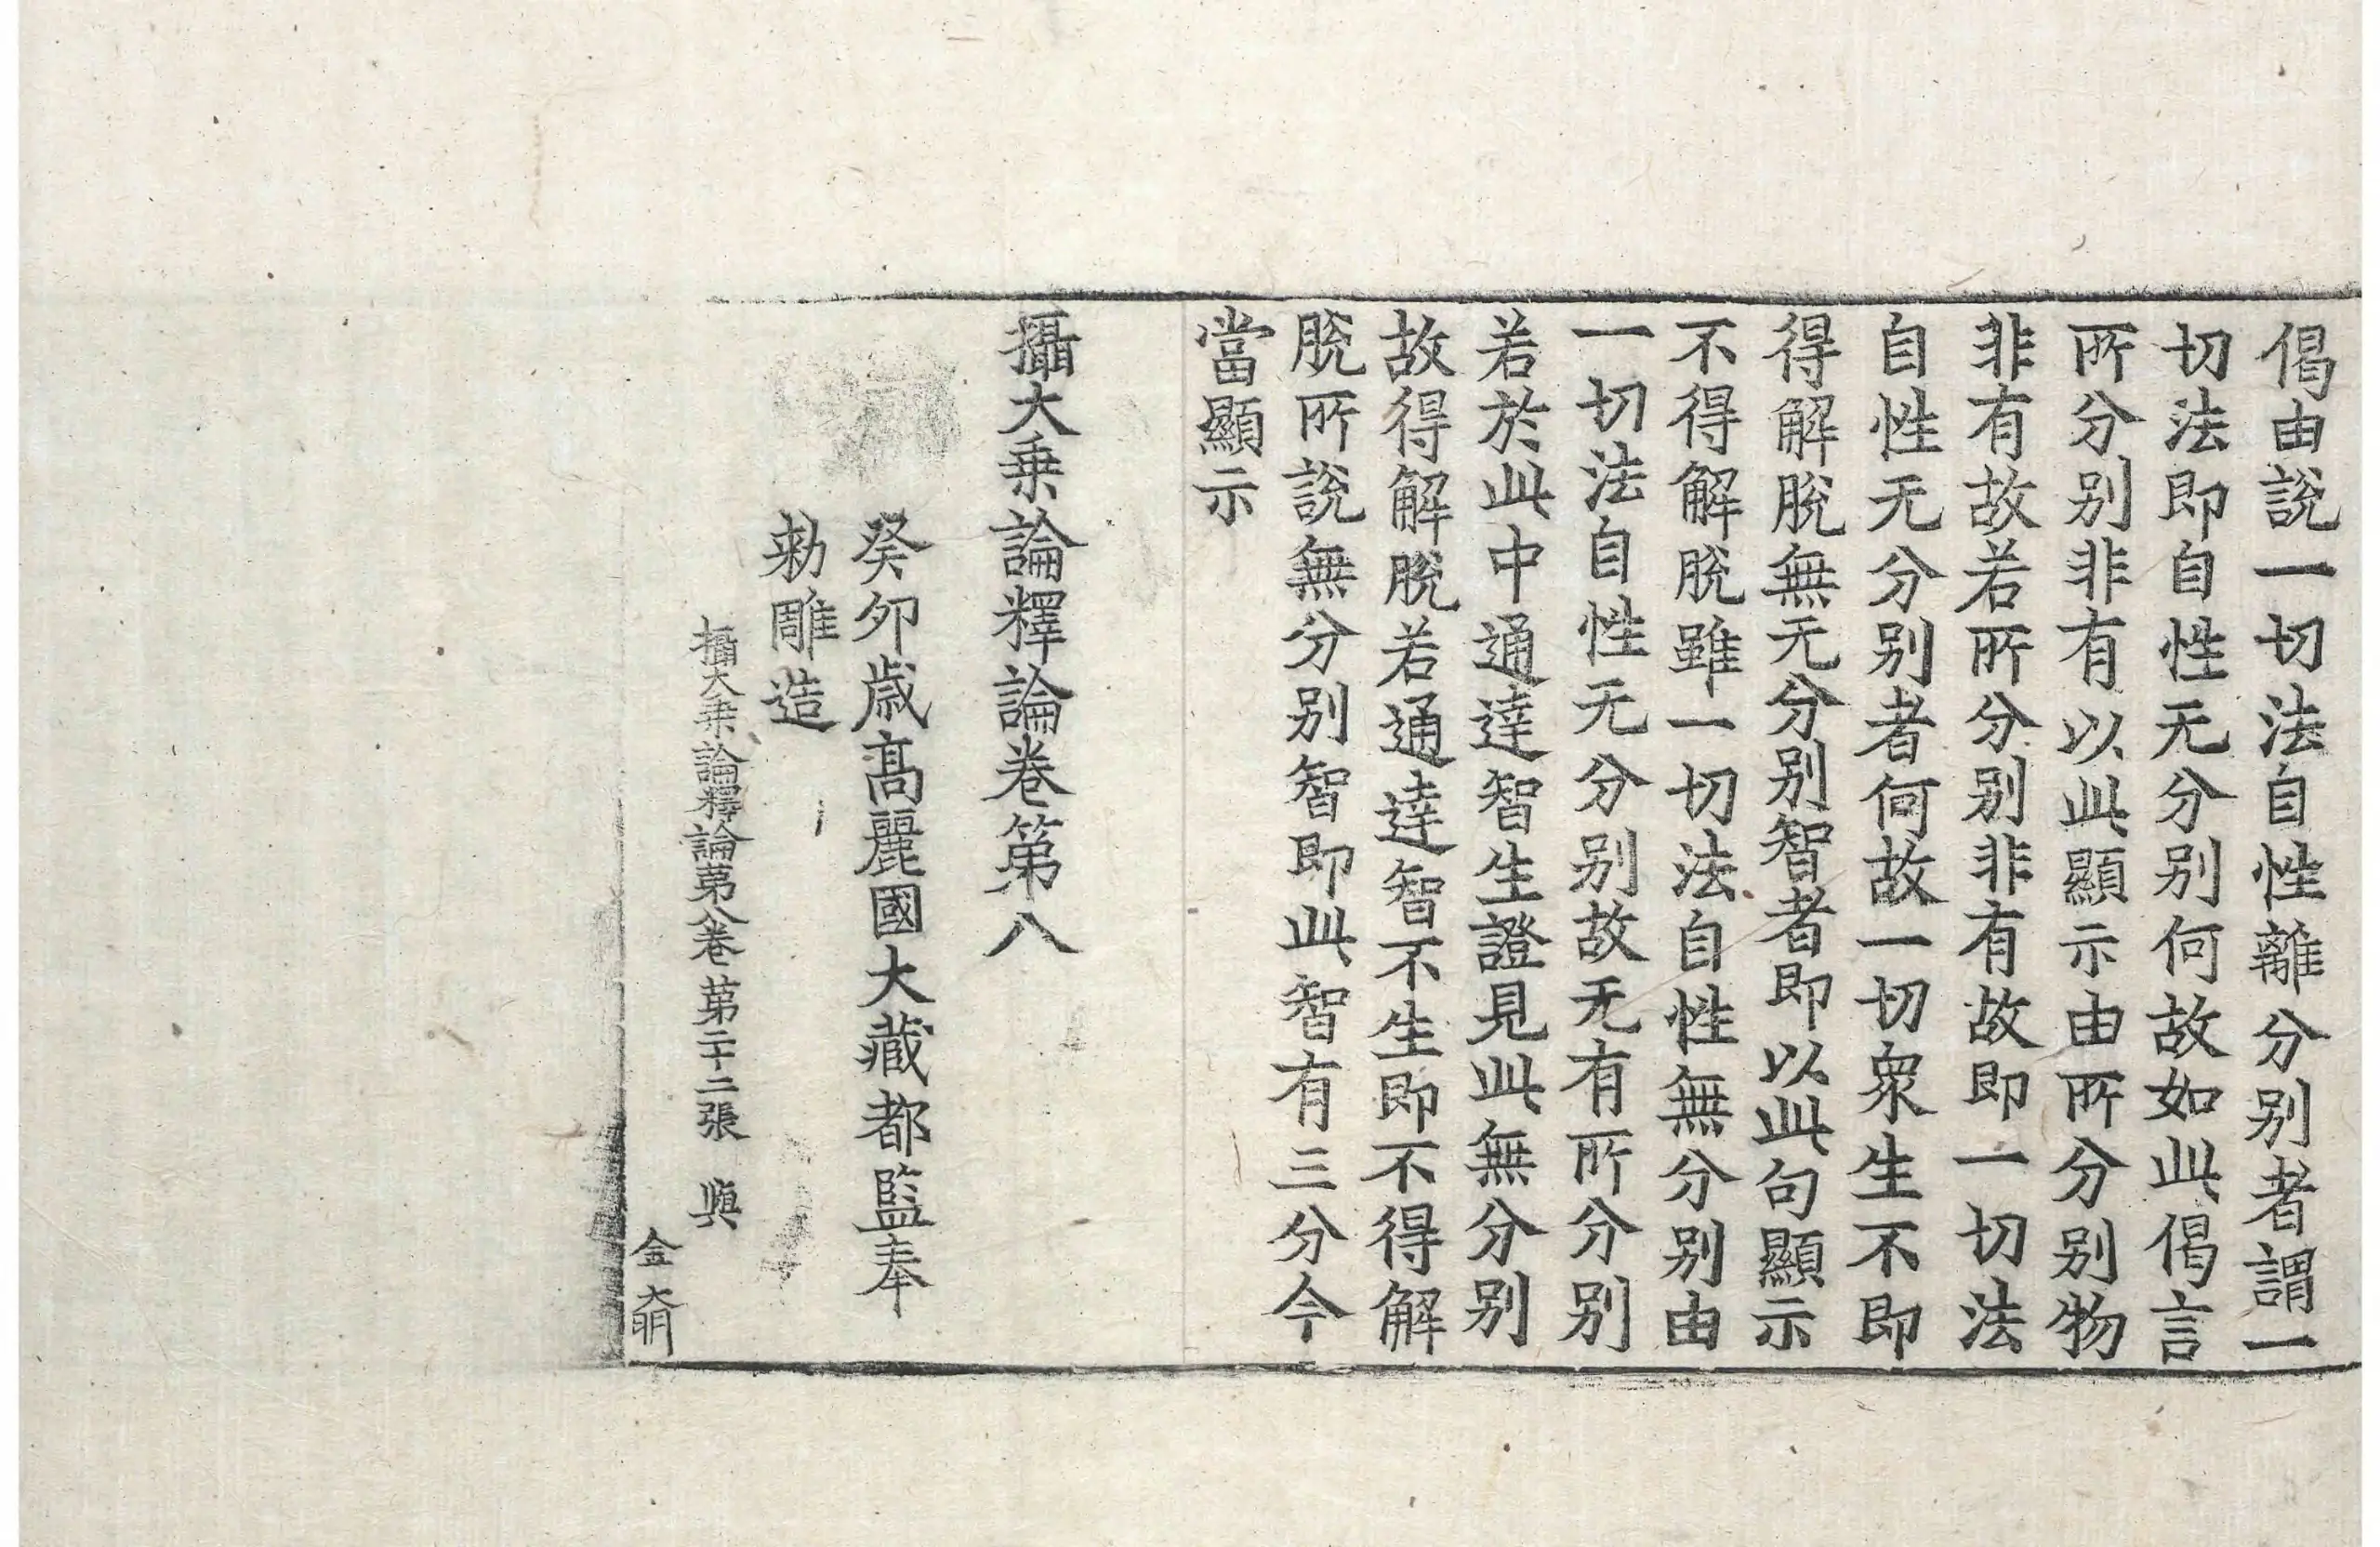 偈由說一切法自性離分别者謂一
切法即自性无分别何故如此偈言
所分别非有以此顯示由所分别物
非有故若所分别非有故即一切法
自性无分别者何故一切衆生不即
得解脫無无分别智者即以此句顯示
不得解脫雖一切法自性無分别由
一切法自性无分别故无有所分别
若於此中通達智生證見此無分别
故得解脫若通達智不生即不得解
脫所說無分别智即此智有三分今
當顯示
攝大乗論釋論卷第八
癸卯歳髙麗國大藏都監奉
勑雕造
攝大乗論釋論第八卷 第二十二張
金